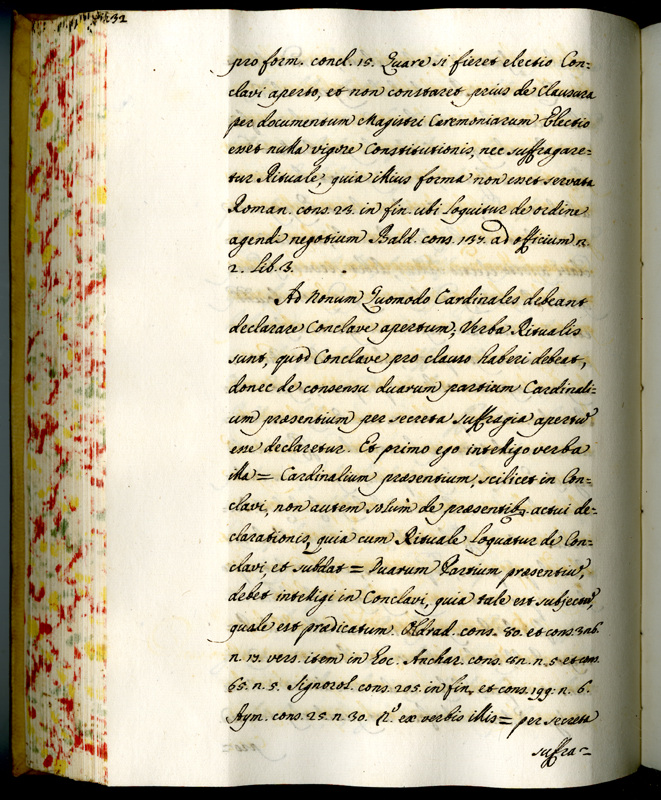 32
pro form. concl. 15. Quare si fieret electio Con=
clavi aperto, et non constaret prius de Clausura
per documentum Magistri Cæremoniarum Electio
esset nulla vigore Constitutionis, nec suffragare=
tur Rituale, quia illius forma non esset servata
Roman. cons. 23. in fin. ubi loquitur de ordine
agendi negotium Bald. cons. 137. ad officium n.
2. lib. 3.
Ad Nonum Quomodo Cardinales debeant
declarare Conclave apertum; Verba Ritualis
sunt, quod Conclave pro clauso haberi debeat,
donec de consensu duarum partium Cardinali=
um præsentium per secreta suffragia apertũ
esse declaretur. Et primo ego intelligo verba
illa = Cardinalium præsentium, scilicet in Con=
clavi, non autem solum de præsentib. actui de=
clarationis, quia cum Rituale loquatur de Con=
clavi, et subdat = Duarum Partium præsentiũ,
debet intelligi in Conclavi, quia tale est subjectũ,
quale est prædicatum. Oldrad. cons. 80. et cons.
n. 17. vers. item in Anchar. cons. n. 5 et cons.
65. n. 5. Signorol. cons. 205. in fin, et cons. 199: n. 6.
Aym. cons. 25. n. 30. ex verbis illis = per secreta
suffra=